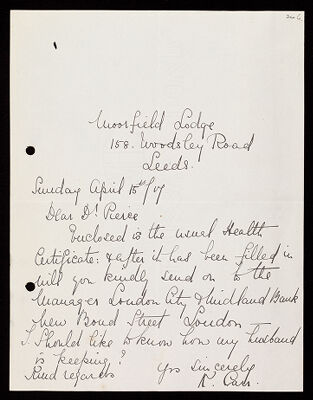 Moorfield Lodge
158. Woodsley Road
Leeds.
Sunday April 15th/17
Dear Dr Pierce
Enclosed is the usual Health
Certificate: & after it has been filled in
will you kindly send on to the
Manager London City & Midland Bank
New Bond Street London
I Should like to know how my husband
is keeping?
Kind regards Yrs sincerely
K. Carr.